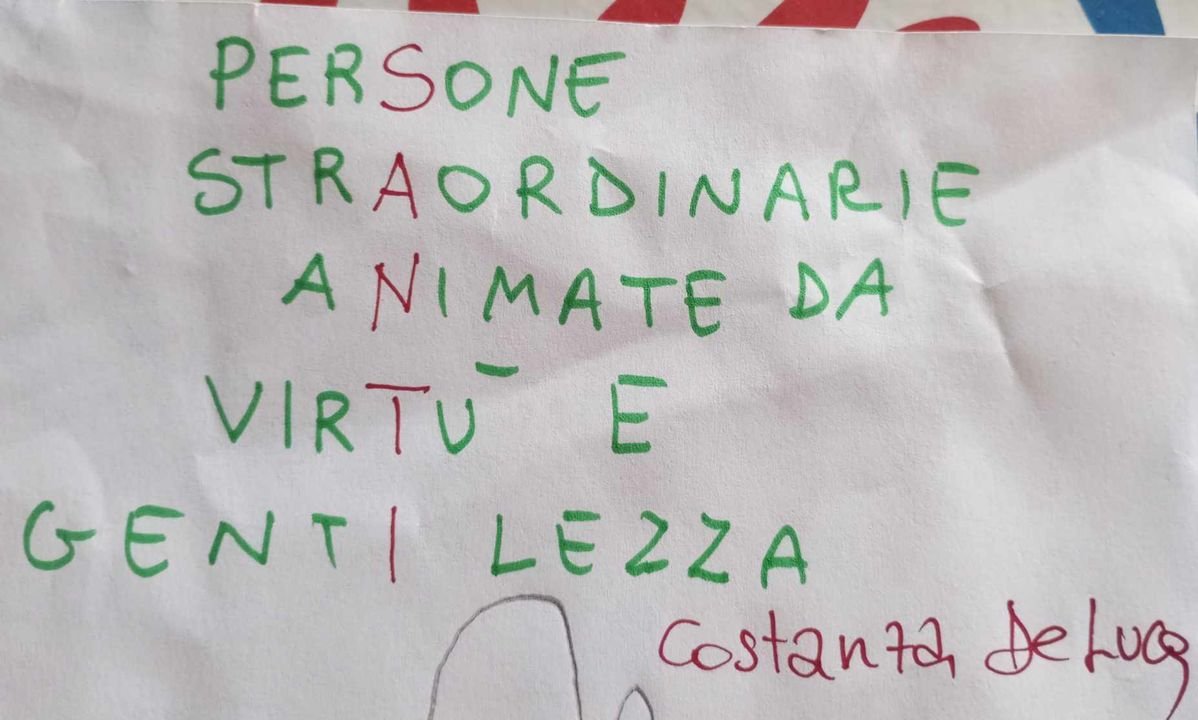 PERSONE
STRAORDINARIE
ANIMATE DA
VIRTÙ E
GENTILEZZA
Costanza De Luca